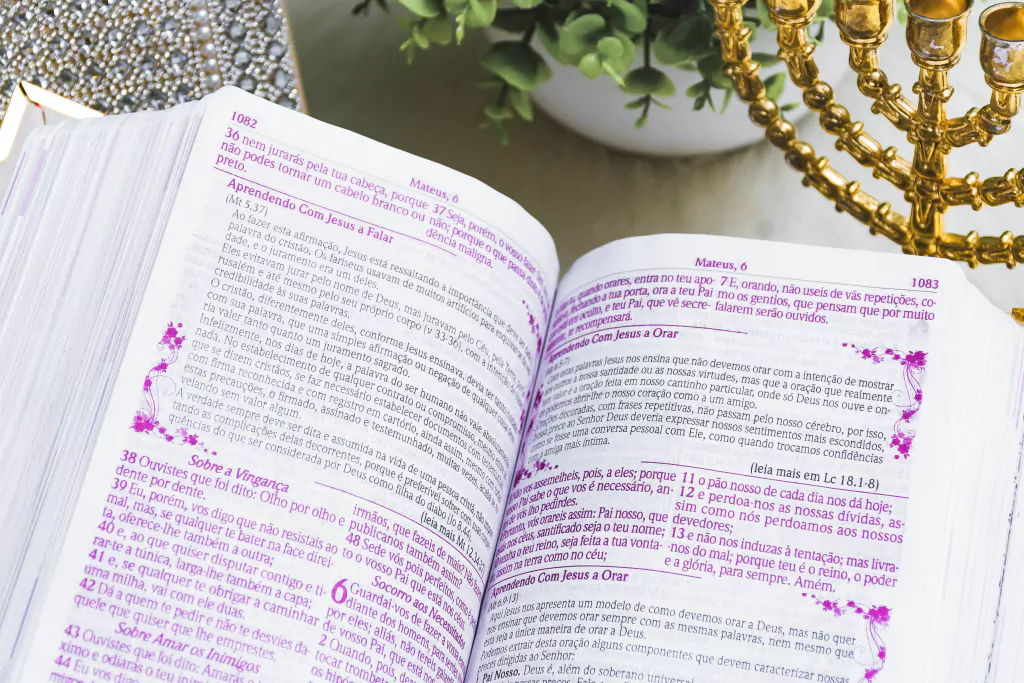 1082
Mateus, 6
36 nem jurarás pela tua cabeça, porque
não podes tornar um cabelo branco ou
preto.
37 Seja, porém, o vosso falar:
não; porque o que passa
dência maligna.
Aprendendo Com Jesus a Falar
(Mt 5.37)
Ao fazer esta afirmação, Jesus está ressaltando a importância que deve ser
palavra do cristão. Os fariseus usavam de muitos artifícios para esquivar
dade, e o juramento era um deles.
Eles evitavam jurar pelo nome de Deus, mas juravam pelo Céu, pela
rusalém e até mesmo pelo seu próprio corpo (v 33-36), com a intenção
credibilidade às suas palavras.
O cristão, diferentemente deles, conforme Jesus ensinava, devia ter
com sua palavra, que uma simples afirmação ou negação de qualquer
ria valer tanto quanto um juramento sagrado.
Infelizmente, nos dias de hoje, a palavra do ser humano não vale absolutamente
nada. No estabelecimento de qualquer contrato ou compromisso, mesmo
que se dizem cristãos, se faz necessário estabelecer documentos, com
com firma reconhecida e registro em cartório, ainda assim,
estas precauções, o firmado, assinado e testemunhado, muitas vezes, acaba
velando sem valor algum.
A verdade sempre deve ser dita e assumida na vida de uma pessoa cristã,
tando as complicações delas decorrentes, porque é preferível sofrer com
quências do que ser considerada por Deus como filha do diabo (Jo 8.44).
(leia mais Mt 12.34-37)
Sobre a Vingança
38 Ouvistes que foi dito: Olho por olho e
dente por dente.
39 Eu, porém, vos digo que não resistais ao
mal, mas, se qualquer te bater na face direi-
ta, oferece-lhe também a outra;
40 e, ao que quiser disputar contigo e ti-
rar-te a túnica, larga-lhe também a capa;
41 e, se qualquer te obrigar a caminhar
uma milha, vai com ele duas.
42 Dá a quem te pedir e não te desvies da-
quele que quiser que lhe emprestes.
Sobre Amar os Inimigos
43 Ouvistes que foi dito: Amarás o
ximo e odiarás o teu
44 Eu, porém, vos
irmãos, que fazeis de mais? Não
publicanos também assim?
48 Sede vós pois perfeitos, como
to o vosso Pai que está nos céus
Socorro aos Necessitados
6 Guardai-vos de fazer a vossa
diante dos homens, para
por eles; aliás, não tereis
de vosso Pai, que está nos
2 Quando, pois,
tocar trombeta
os
Mateus, 6
1083
quando orares, entra no teu apo-
fechando a tua porta, ora a teu Pai
em oculto, e teu Pai, que vê secre-
te recompensará.
7 E, orando, não useis de vãs repetições, co-
mo os gentios, que pensam que por muito
falarem serão ouvidos.
Aprendendo Com Jesus a Orar
estas palavras Jesus nos ensina que não devemos orar com a intenção de mostrar
outros a nossa santidade ou as nossas virtudes, mas que a oração que realmente
valor é a oração feita em nosso cantinho particular, onde só Deus nos ouve e on-
podemos abrilhe o nosso coração como a um amigo.
decoradas, com frases repetitivas, não passam pelo nosso cérebro, por isso,
prece ao Senhor Deus deveria expressar nossos sentimentos mais escondidos,
como se fosse uma conversa pessoal com Ele, como quando trocamos confidências
amiga mais íntima.
(leia mais em Lc 18.1-8)
Não vos assemelheis, pois, a eles; porque
vosso Pai sabe o que vos é necessário, an-
de vós lho pedirdes.
Portanto, vós orareis assim: Pai nosso, que
nos céus, santificado seja o teu nome;
venha o teu reino, seja feita a tua vonta-
assim na terra como no céu;
11 o pão nosso de cada dia nos dá hoje;
12 e perdoa-nos as nossas dívidas, as-
sim como nós perdoamos aos nossos
devedores;
13 e não nos induzas à tentação; mas livra-
-nos do mal; porque teu é o reino, o poder
e a glória, para sempre. Amém.
Aprendendo Com Jesus a Orar
(Mt 6.9-13)
Aqui Jesus nos apresenta um modelo de como devemos orar a Deus, mas não quer
nos ensinar que devemos orar sempre com as mesmas palavras, nem mesmo que
esta seja a única maneira de orar a Deus.
Podemos extrair desta oração alguns componentes que devem caracterizar nossas
preces dirigidas ao Senhor:
Pai Nosso. Deus é, além do soberano universal